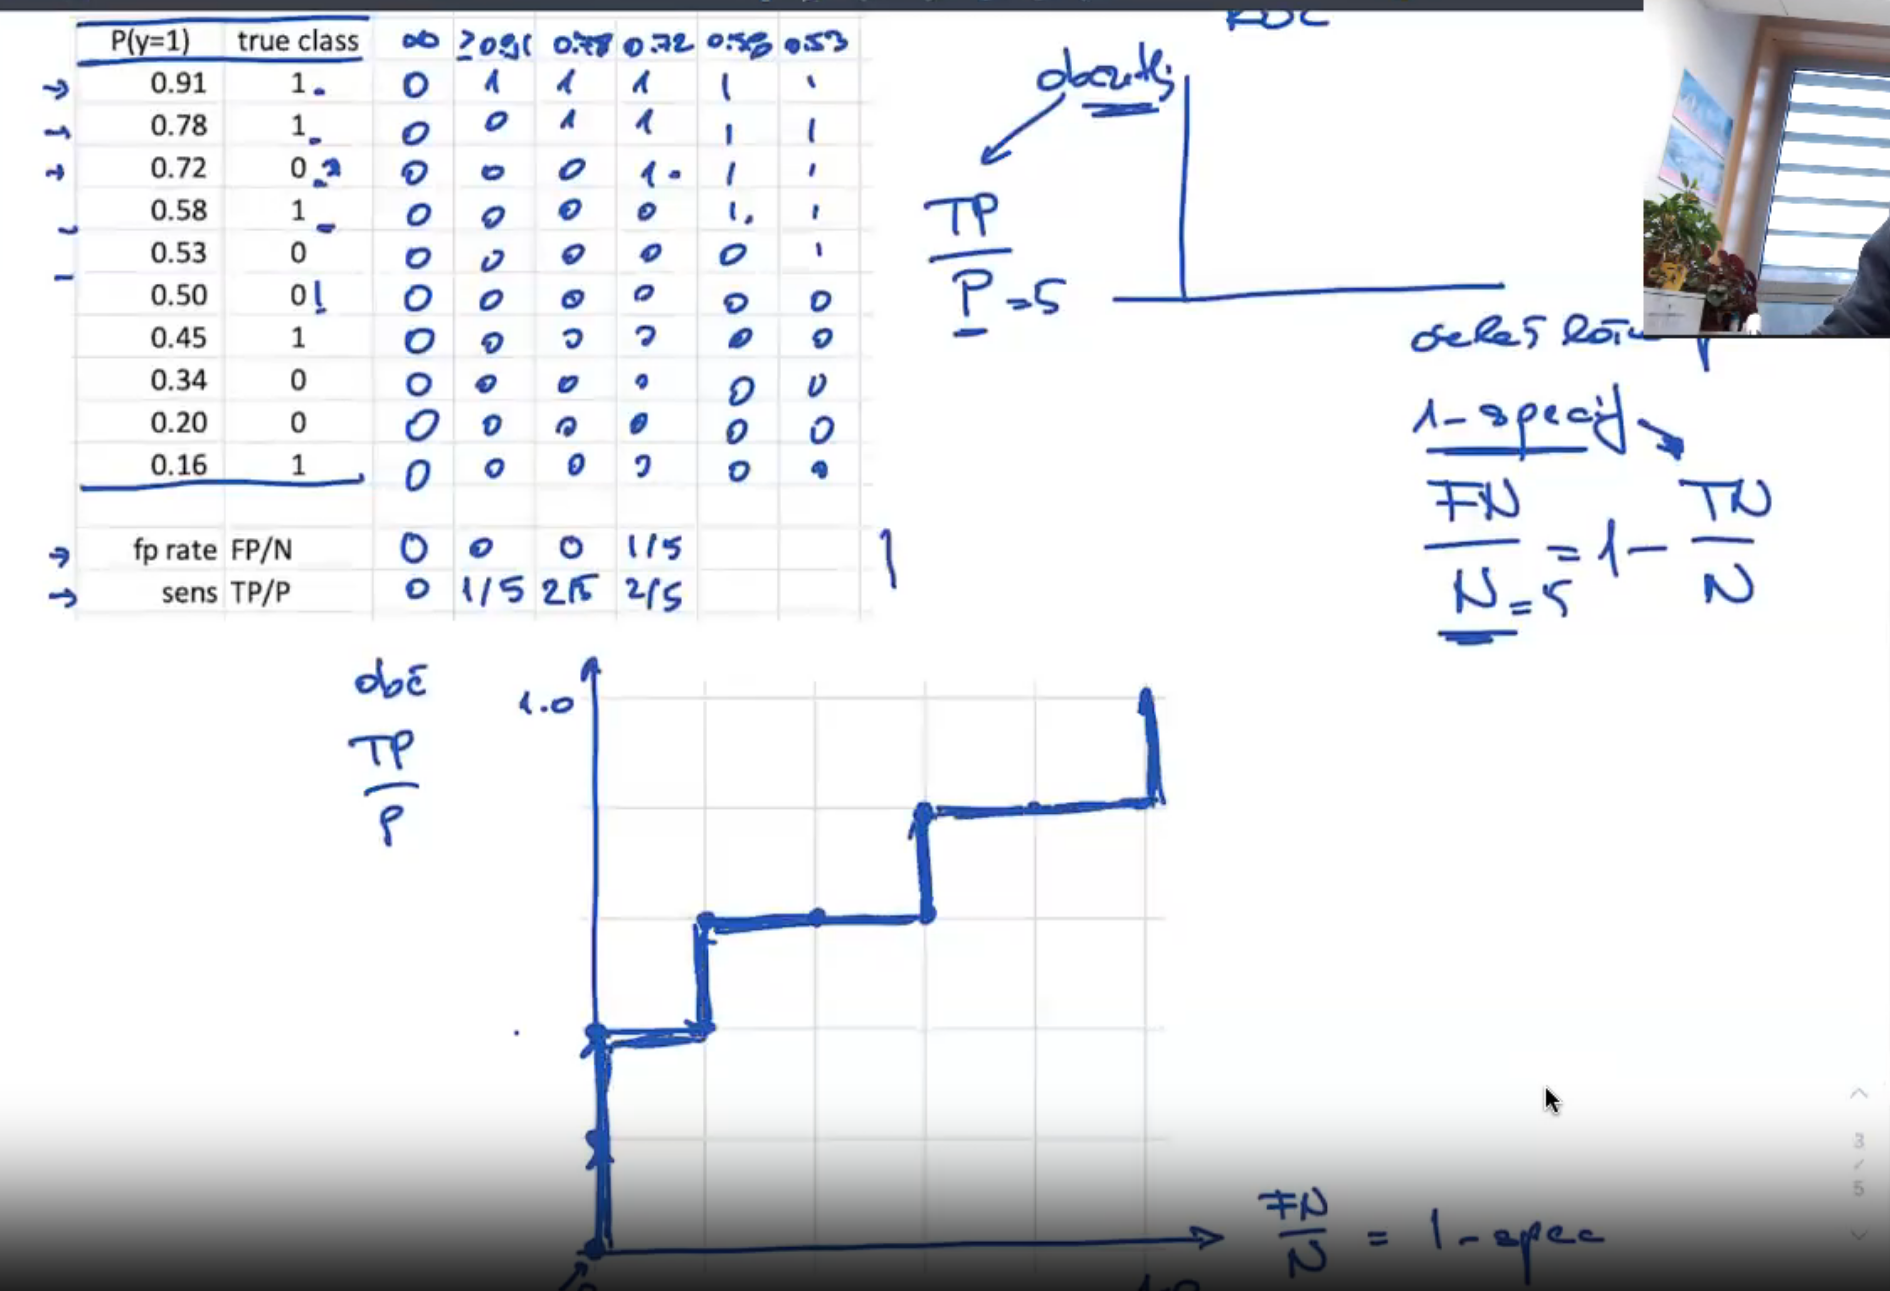 P(y=1) true class ∞ ≥0.91 0.78 0.72 0.58 0.53
0.91 1 0 1 1 1 1 1
0.78 1 0 0 1 1 1 1
0.72 0 0 0 0 1 1 1
0.58 1 0 0 0 0 1 1
0.53 0 0 0 0 0 0 1
0.50 0! 0 0 0 0 0 0
0.45 1 0 0 0 0 0 0
0.34 0 0 0 0 0 0 0
0.20 0 0 0 0 0 0 0
0.16 1 0 0 0 0 0 0
fp rate FP/N 0 0 0 1/5
sens TP/P 0 1/5 2/5 2/5
1
ROC
TP
P = 5
1 - specif
FN
N = 5
= 1 -
TN
N
obč
TP
P
1.0
0
1.0
FN
N
= 1 - spec
3
/
5